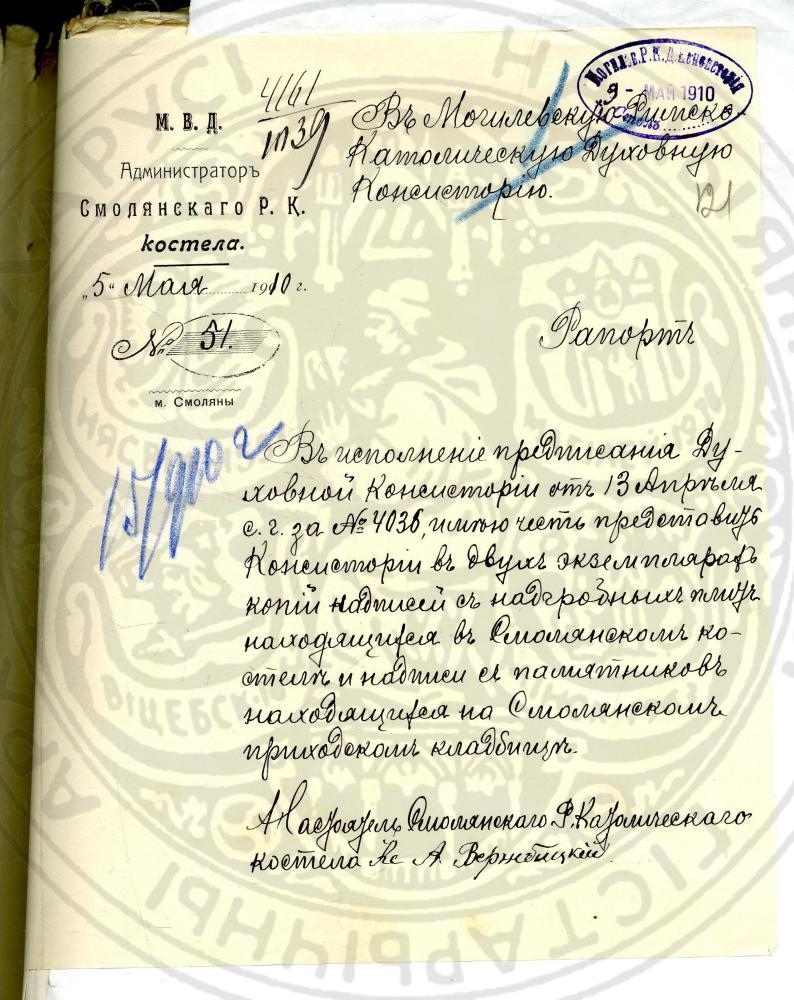 М. В. Д.
Администраторъ
Смолянскаго Р. К.
костела.
„5“ Мая 1910 г.
№ 51.
м. Смоляны
4161
Могилев. Р. К. Д. Консисторія
9 - МАЙ 1910
Въ Могилевскую Римско-
Католическую Духовную
Консисторію.
121
Рапортъ
15/910 г
Въ исполненіе предписанія Ду-
ховной Консисторіи отъ 13 Апрѣля
с. г. за № 4036, имѣю честь представить
Консисторіи въ двухъ экземплярахъ
копій надписей съ надгробныхъ плитъ
находящихся въ Смолянскомъ ко-
стелѣ и надписи съ памятниковъ
находящихся на Смолянскомъ
приходскомъ кладбищѣ.
Настоятель Смолянскаго Р. Католическаго
костела Кс А. Вержбицкій